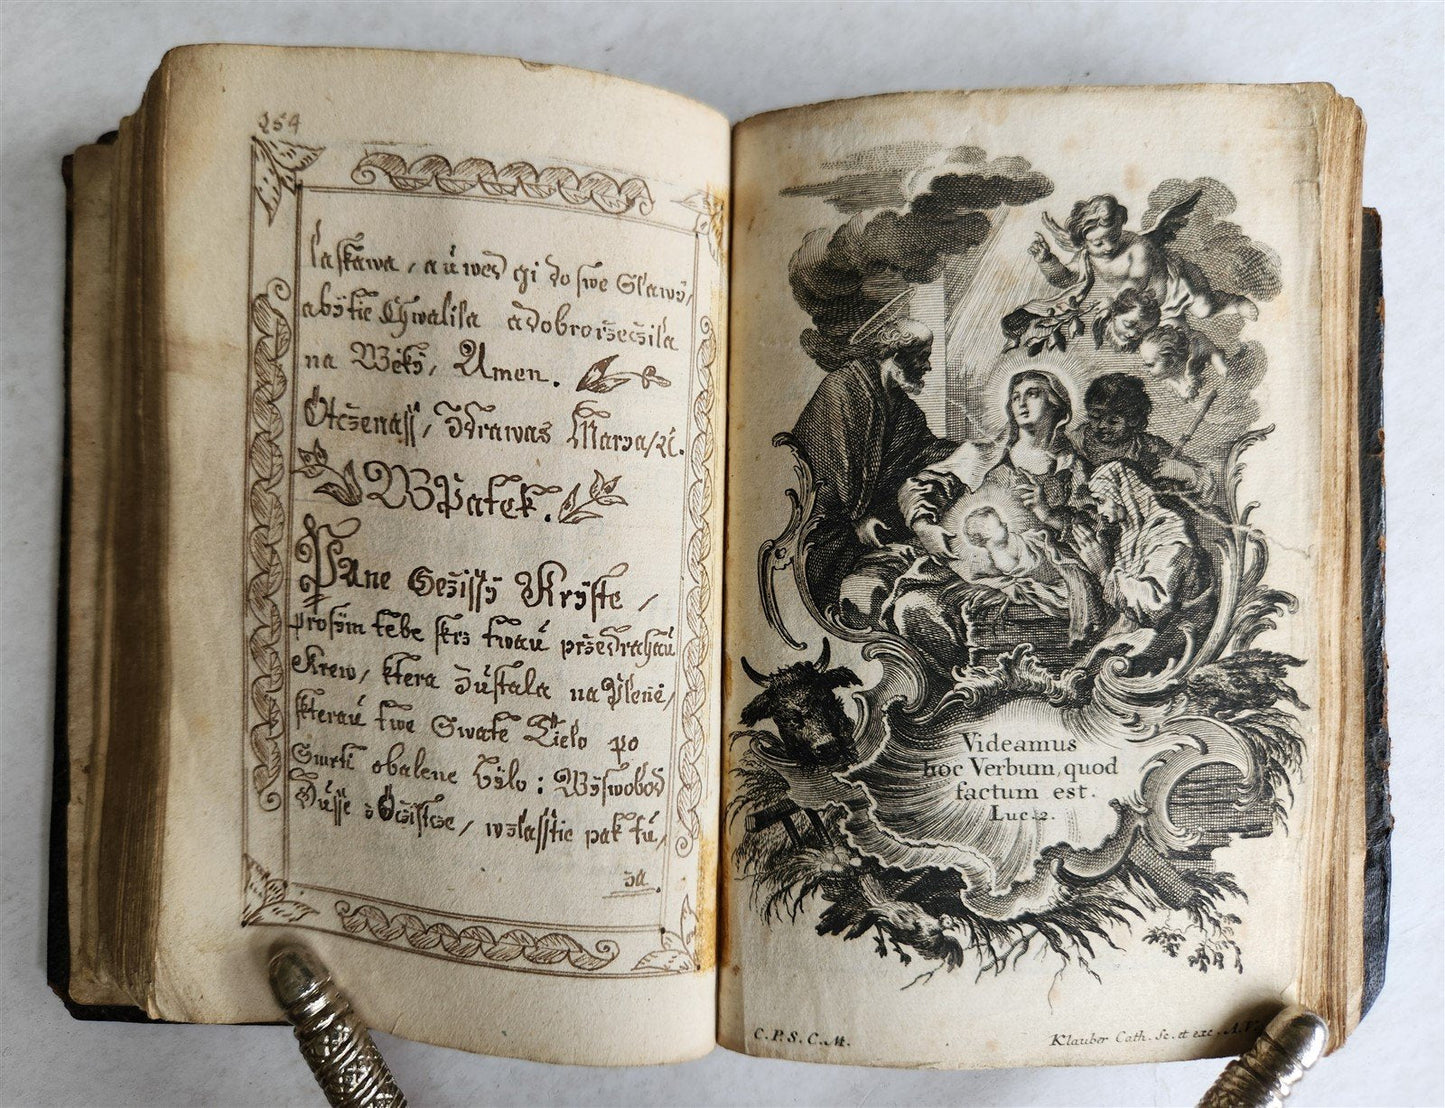 254
laskawa, a uweď gi do swe Slawÿ,
abÿtie Chwalila a dobrořzečzila
na Wěkÿ, Amen.
Otčzenáss, Zdrawas Marÿa, ꝛc.
W Pátek.
Pane Gežissÿ Krÿste,
prosÿm tebe skrz twau přzedrahau
Krew, ktera Zůstala na Pleně,
kterau twe Swaté Tielo po
Smrti obalene bÿlo: Wÿswoboď
Dusse z Očžistcze, wzlásstie pak tu,
za.
Videamus
hoc Verbum, quod
factum est.
Luc. 2.
C. P. S. C. M.
Klauber Cath. Sc. et exc. A. V.